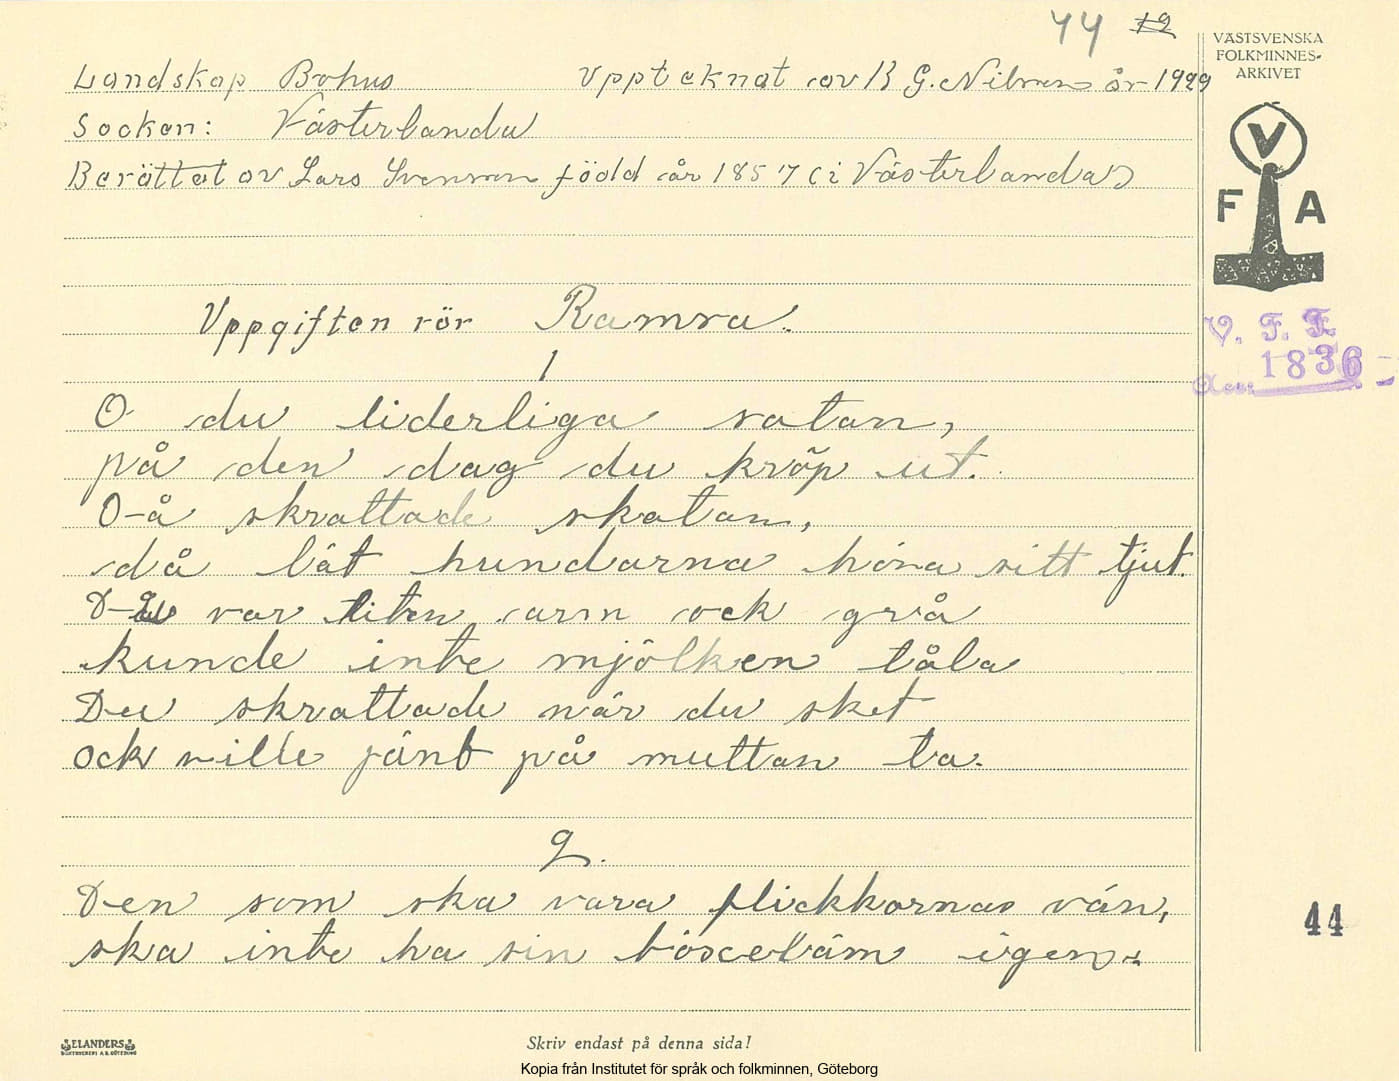 44 12
VÄSTSVENSKA
FOLKMINNES-
ARKIVET
Landskap Bohus Upptecknat av K G. Nilsson år 1929
Socken: Västerlanda
Berättat av Lars Svensson född år 1857 (i Västerlanda)
V
F A
Uppgiften rör Ramsa.
V. F. F.
Acc. 1836
1
O du liderliga satan,
på den dag du kröp ut.
O-å skrattade skatan,
då lät hundarna höra sitt tjut.
var liten arm ock grå
kunde inte mjölken tåla
Du skrattade när du sket
ock ville jänt på muttan ta.
2.
Den som ska vara flickkornas vän,
ska inte ha sin igen.
44
ELANDERS
BOKTRYCKERI A.B. GÖTEBORG
Skriv endast på denna sida!
Kopia från Institutet för språk och folkminnen, Göteborg